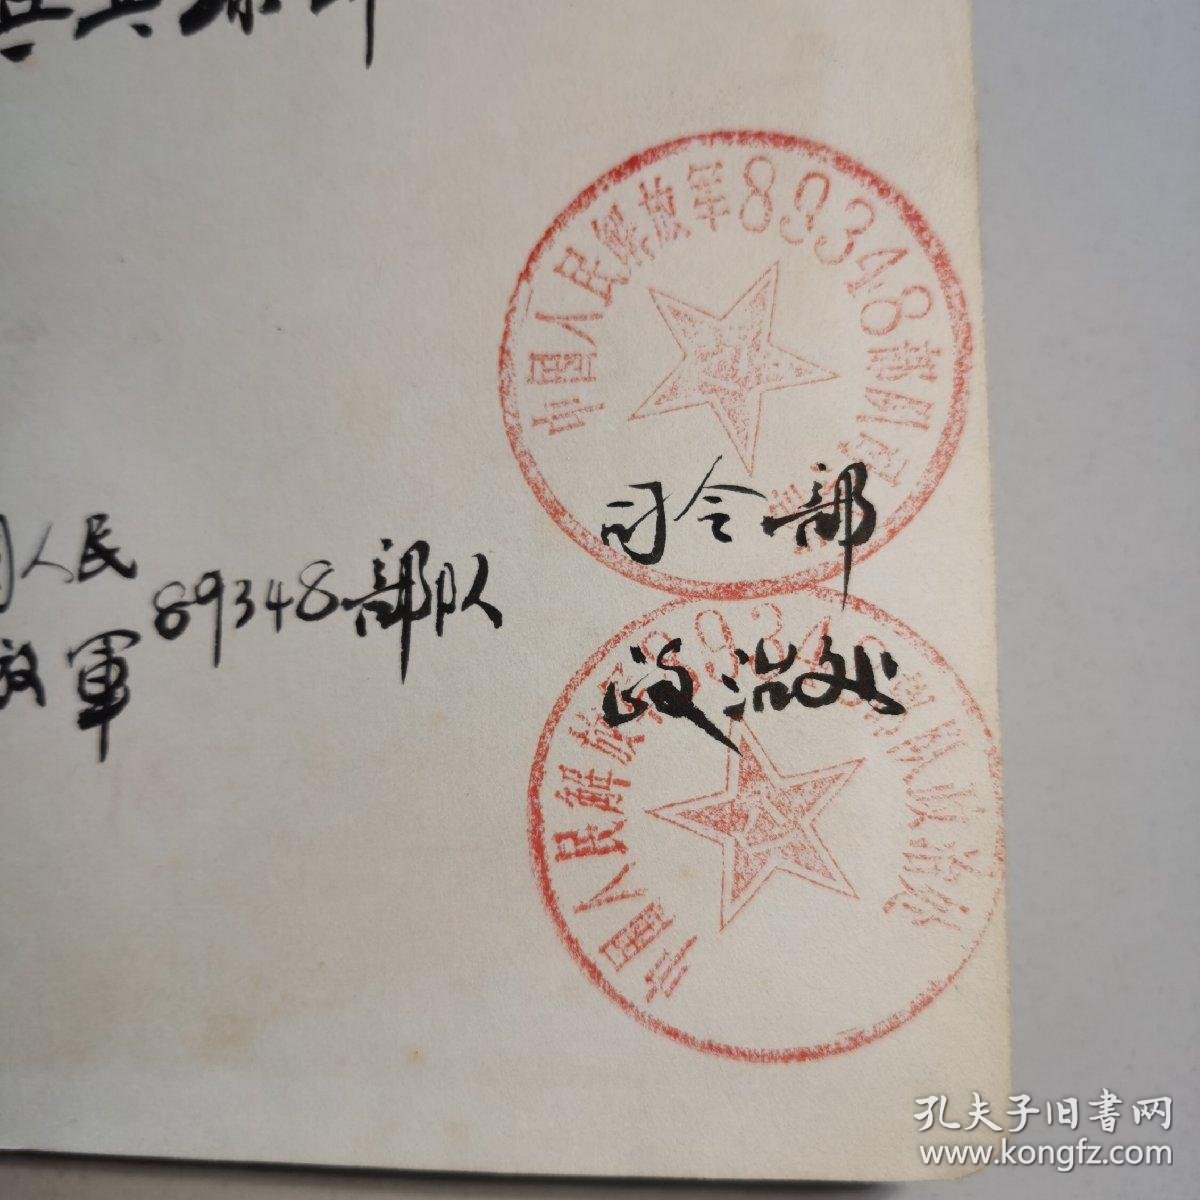 人民
軍
89348部队
司令部
政治处
中国人民解放军89348部队司令部
中国人民解放军89348部队政治处
孔夫子旧書网
www.kongfz.com